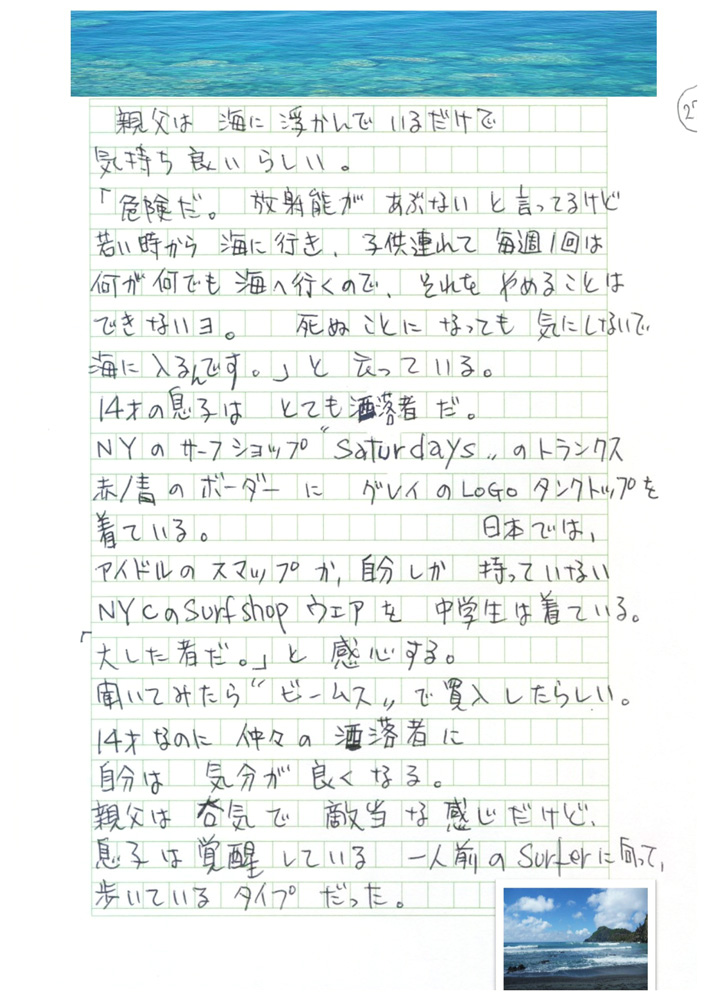 親父は 海に 浮かんで いるだけで
気持ち 良い らしい。
「危険だ。 放射能が あぶない と言ってるけど
若い時から 海に 行き、子供連れて 毎週1回は
何が何でも 海へ行くので、それを やめることは
できないヨ。 死ぬ ことに なっても 気にしないで
海に 入るんです。」と 云っている。
14才の息子は とても 洒落者 だ。
NYの サーフショップ“Saturdays”のトランクス
赤/青 の ボーダー に グレイのLoGoタンクトップを
着ている。 日本では、
アイドルの スマップ か、自分しか 持っていない
NYCのSurfshop ウェアを 中学生は着ている。
「大した者だ。」と 感心する。
聞いてみたら“ビームス”で買入したらしい。
14才なのに 仲々の 洒落者に
自分は 気分が 良く なる。
親父は 呑気で 敵当 な 感じ だけど、
息子は 覚醒 している 一人前の Surferに向って、
歩いている タイプ だった。